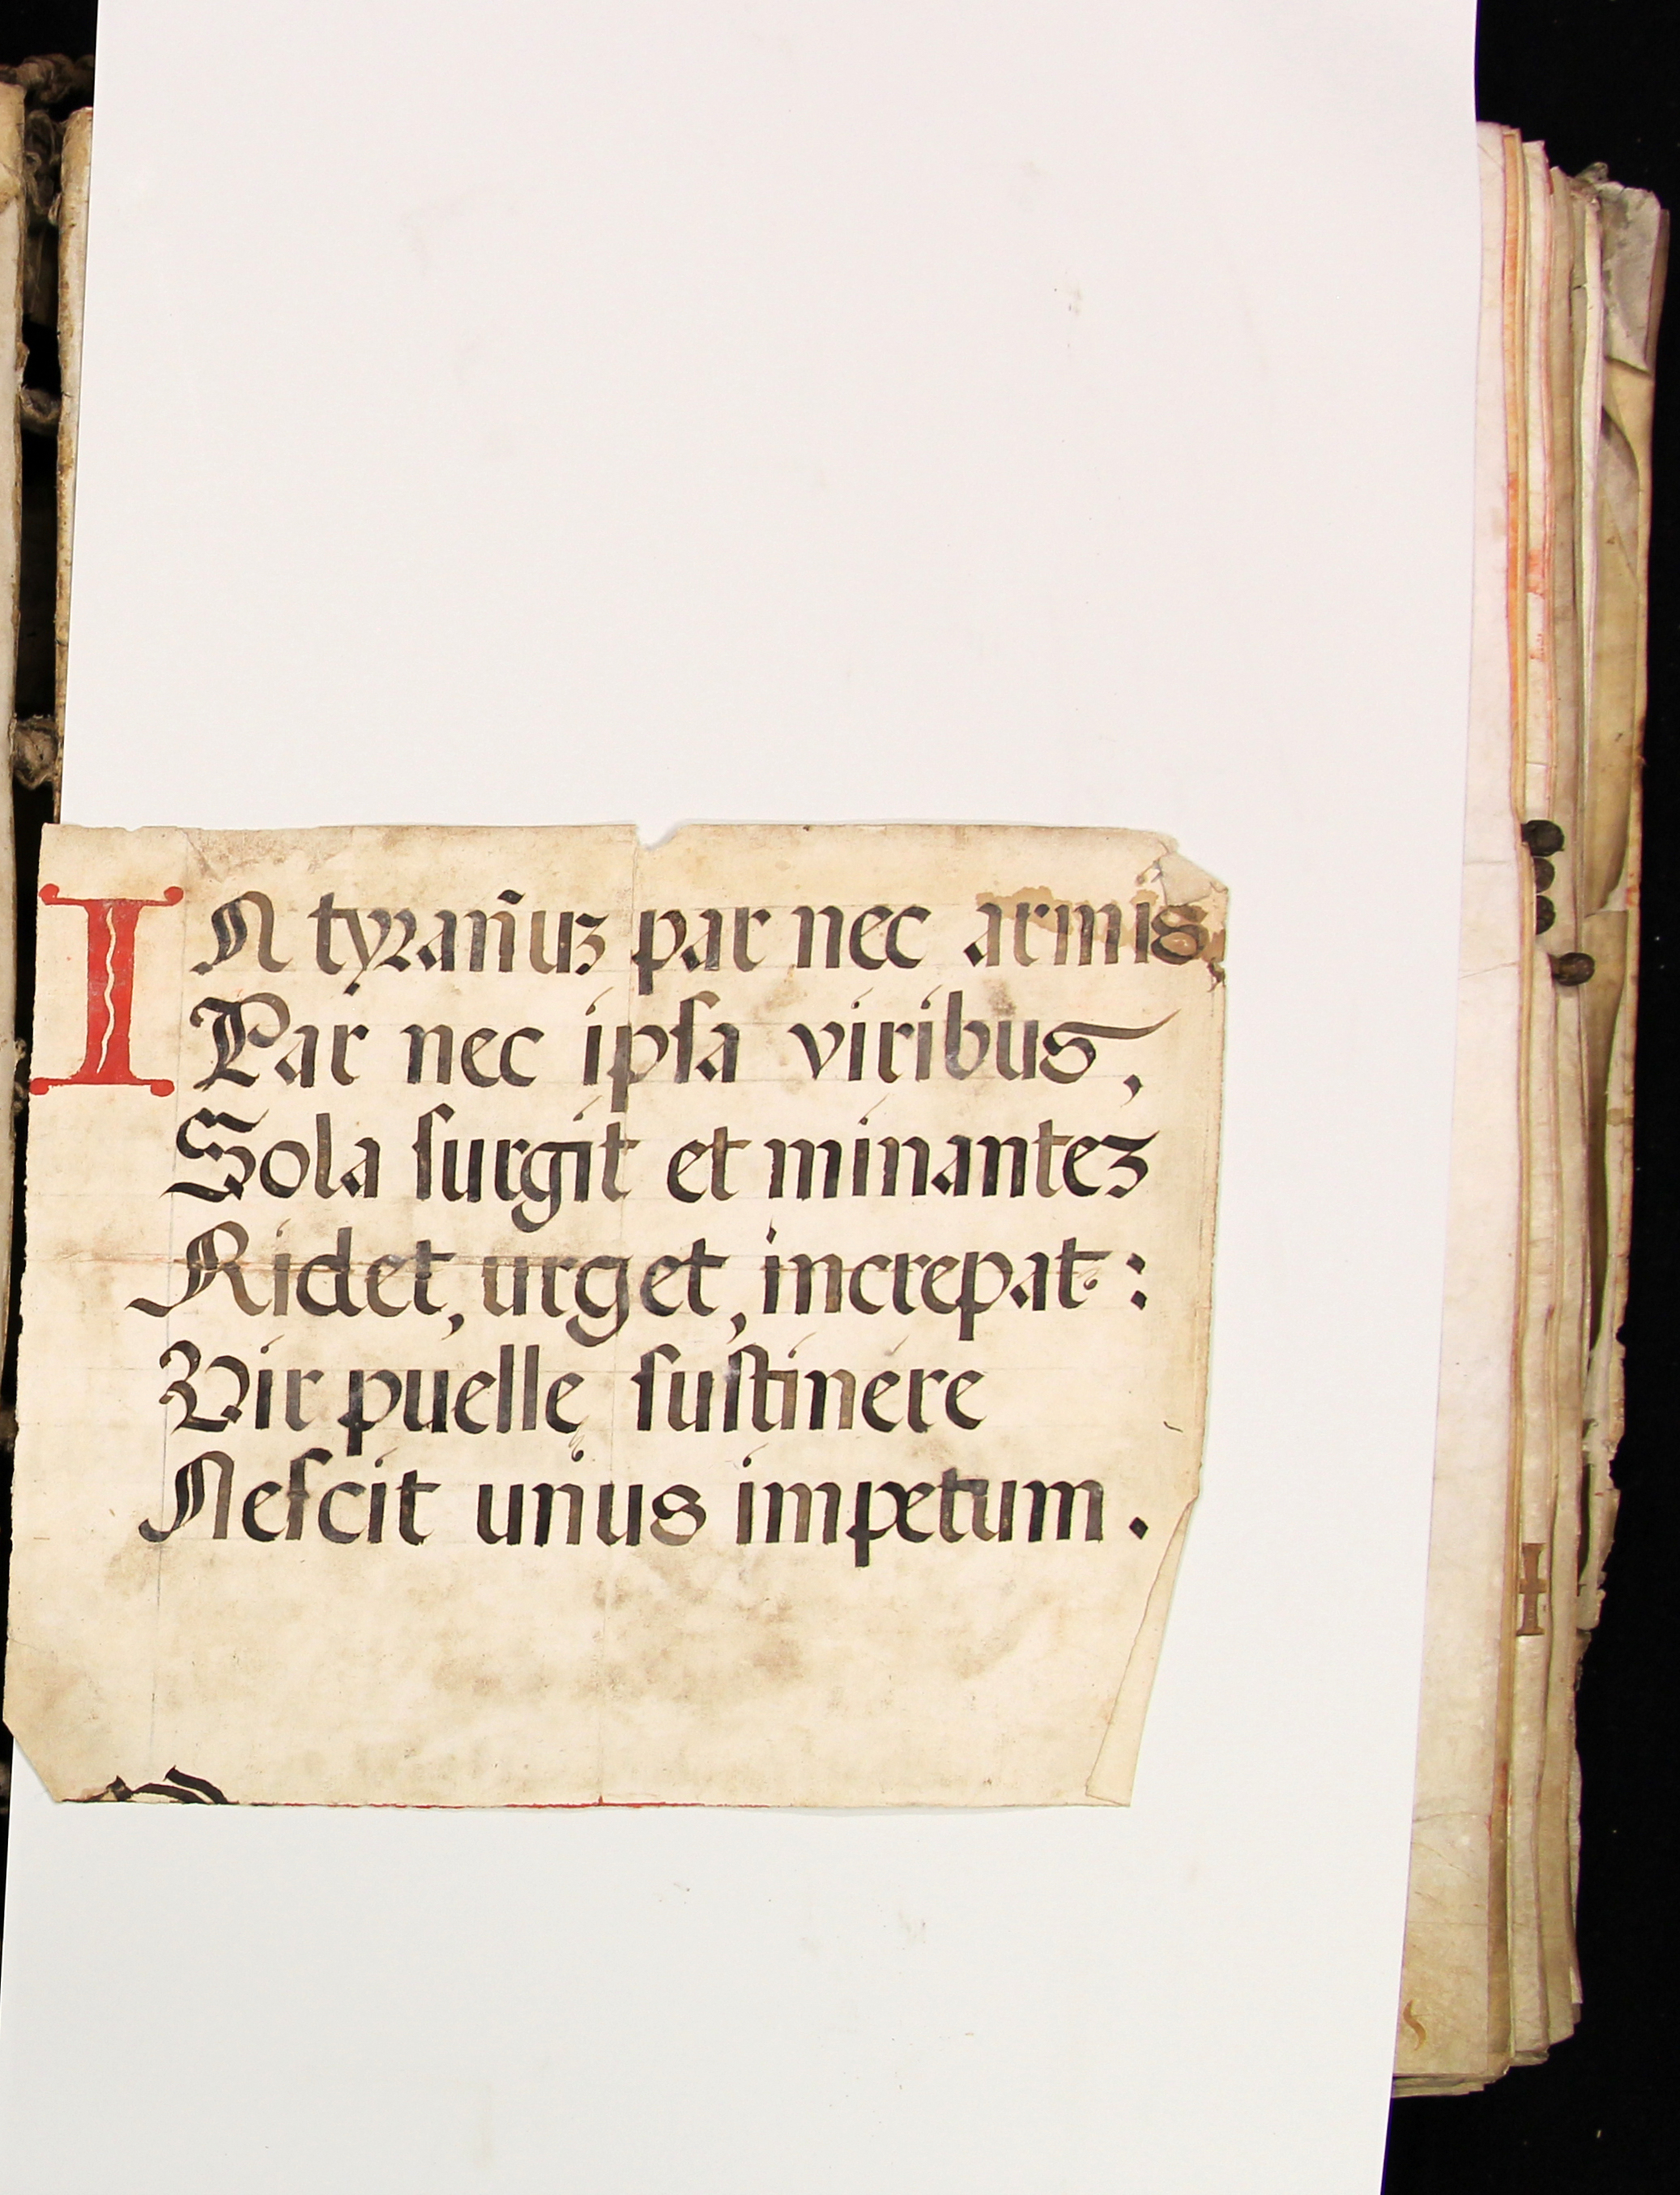 IN tyran̄uꝫ par nec armis
Par nec ipſa viribus,
Sola ſurgit et minanteꝫ
Ridet, urget, increpat:
Vir puellę ſuſtinere
Neſcit unius impetum.